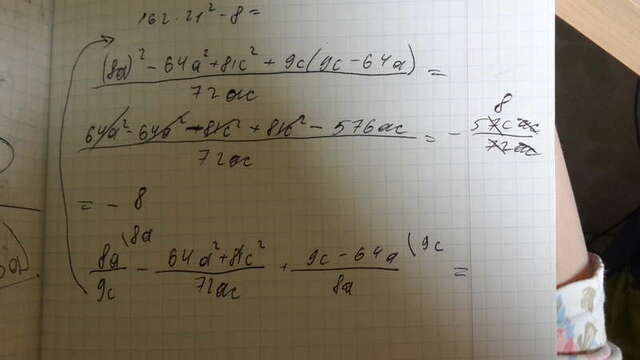 162·21² - 8 =
(8a)² - 64a² + 81c² + 9c(9c - 64a) =
72ac
64a² - 64a² - 81c² + 81c² - 576ac = - 576ac
72ac 72ac
8
= - 8
8a \8a - 64a² + 81c² + 9c - 64a \9c =
9c 72ac 8a